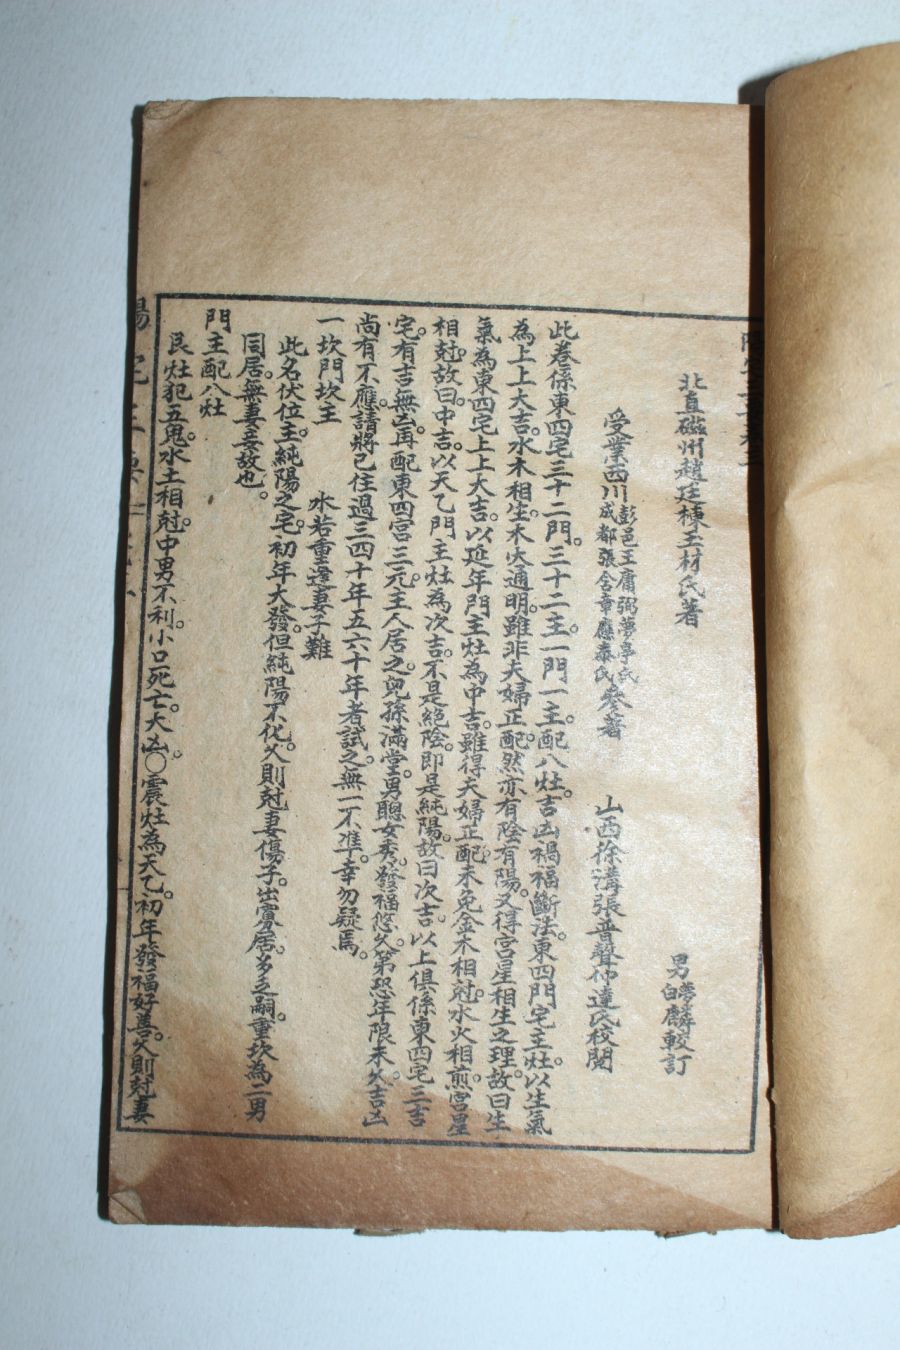 北直磁州趙廷棟玉材氏著　男夢麟較訂
受業西川彭邑王庸弼夢亭氏成都張含章應泰氏參著　山西徐溝張晋聲仰達氏校閱
此卷係東四宅三十二門。三十二主。一門一主。配八灶。吉凶禍福斷法。東四門宅主灶。以生氣
為上上大吉。水木相生。木火通明。雖非夫婦正配。然亦有陰有陽。又得宮星相生之理。故曰生
氣為東四宅上上大吉。以延年門主灶為中吉。雖得夫婦正配。未免金木相尅。水火相煎。宮星
相尅。故曰中吉。以天乙門主灶為次吉。不是絕陰。即是純陽。故曰次吉。以上俱係東四宅三吉
宅。有吉無凶。再配東四宮三元。主人居之。兒孫滿堂。男聰女秀。發福悠久。第恐年限未久。吉凶
尚有不應。請將已住過三四十年五六十年者試之。無一不準。幸勿疑焉。
一坎門坎主　水若重逢妻子難
此名伏位。主純陽之宅。初年大發。但純陽不化。久則尅妻傷子。出寡居。多乏嗣。重坎為二男
同居。無妻妾故也。
門主配八灶
艮灶犯五鬼。水土相尅。中男不利。小口死亡。大凶。〇震灶為天乙。初年發福好善。久則尅妻